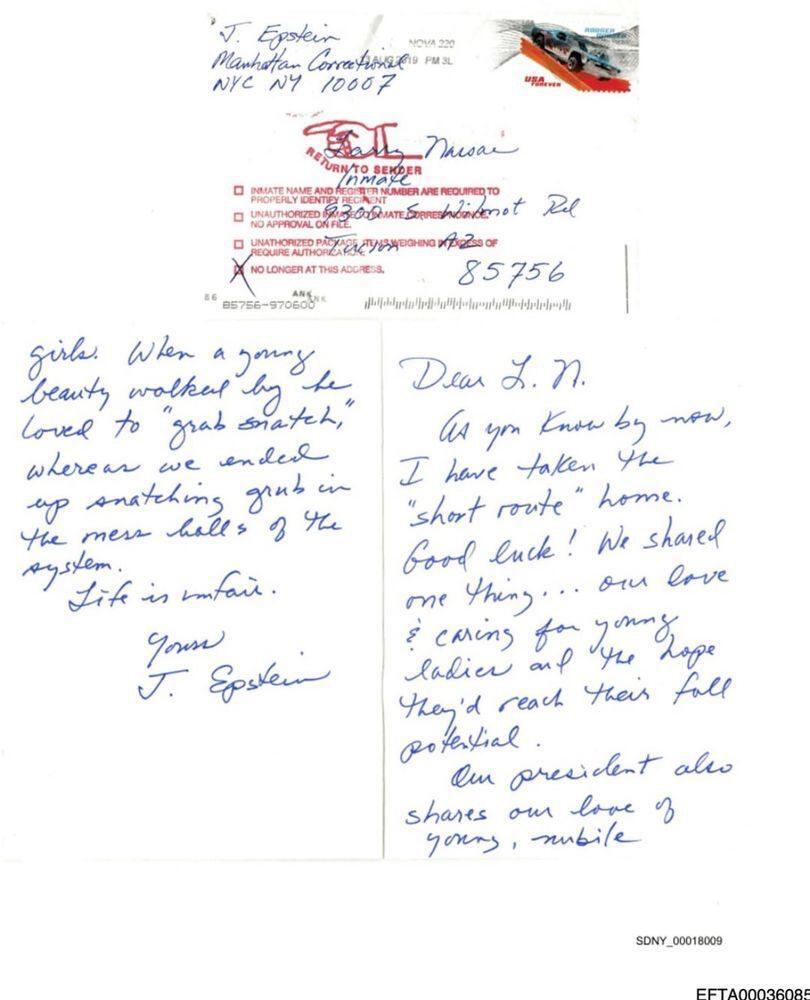 J. Epstein
Manhattan Correctional
NYC NY 10007
NOVA 220
AUG 2019 PM 3L
USA
FOREVER
Larry Nassar
RETURN TO SENDER
Inmate
INMATE NAME AND REGISTER NUMBER ARE REQUIRED TO
PROPERLY IDENTIFY RECIPIENT
9300 S. Wilmot Rd
UNAUTHORIZED INMATE TO INMATE CORRESPONDENCE.
NO APPROVAL ON FILE.
Tucson AZ
UNAUTHORIZED PACKAGE, ITEMS WEIGHING IN EXCESS OF
REQUIRE AUTHORIZATION
85756
X NO LONGER AT THIS ADDRESS.
86
ANK
ANK
85756-970600
Dear L. N.
As you know by now,
I have taken the
"short route" home.
Good luck! We shared
one thing... our love
& caring for young
ladies and the hope
they'd reach their full
potential.
Our president also
shares our love of
young, nubile
girls. When a young
beauty walked by he
loved to "grab snatch,"
whereas we ended
up snatching grub in
the mess halls of the
system.
Life is unfair.
Yours
J. Epstein
SDNY_00018009
EFTA00036085